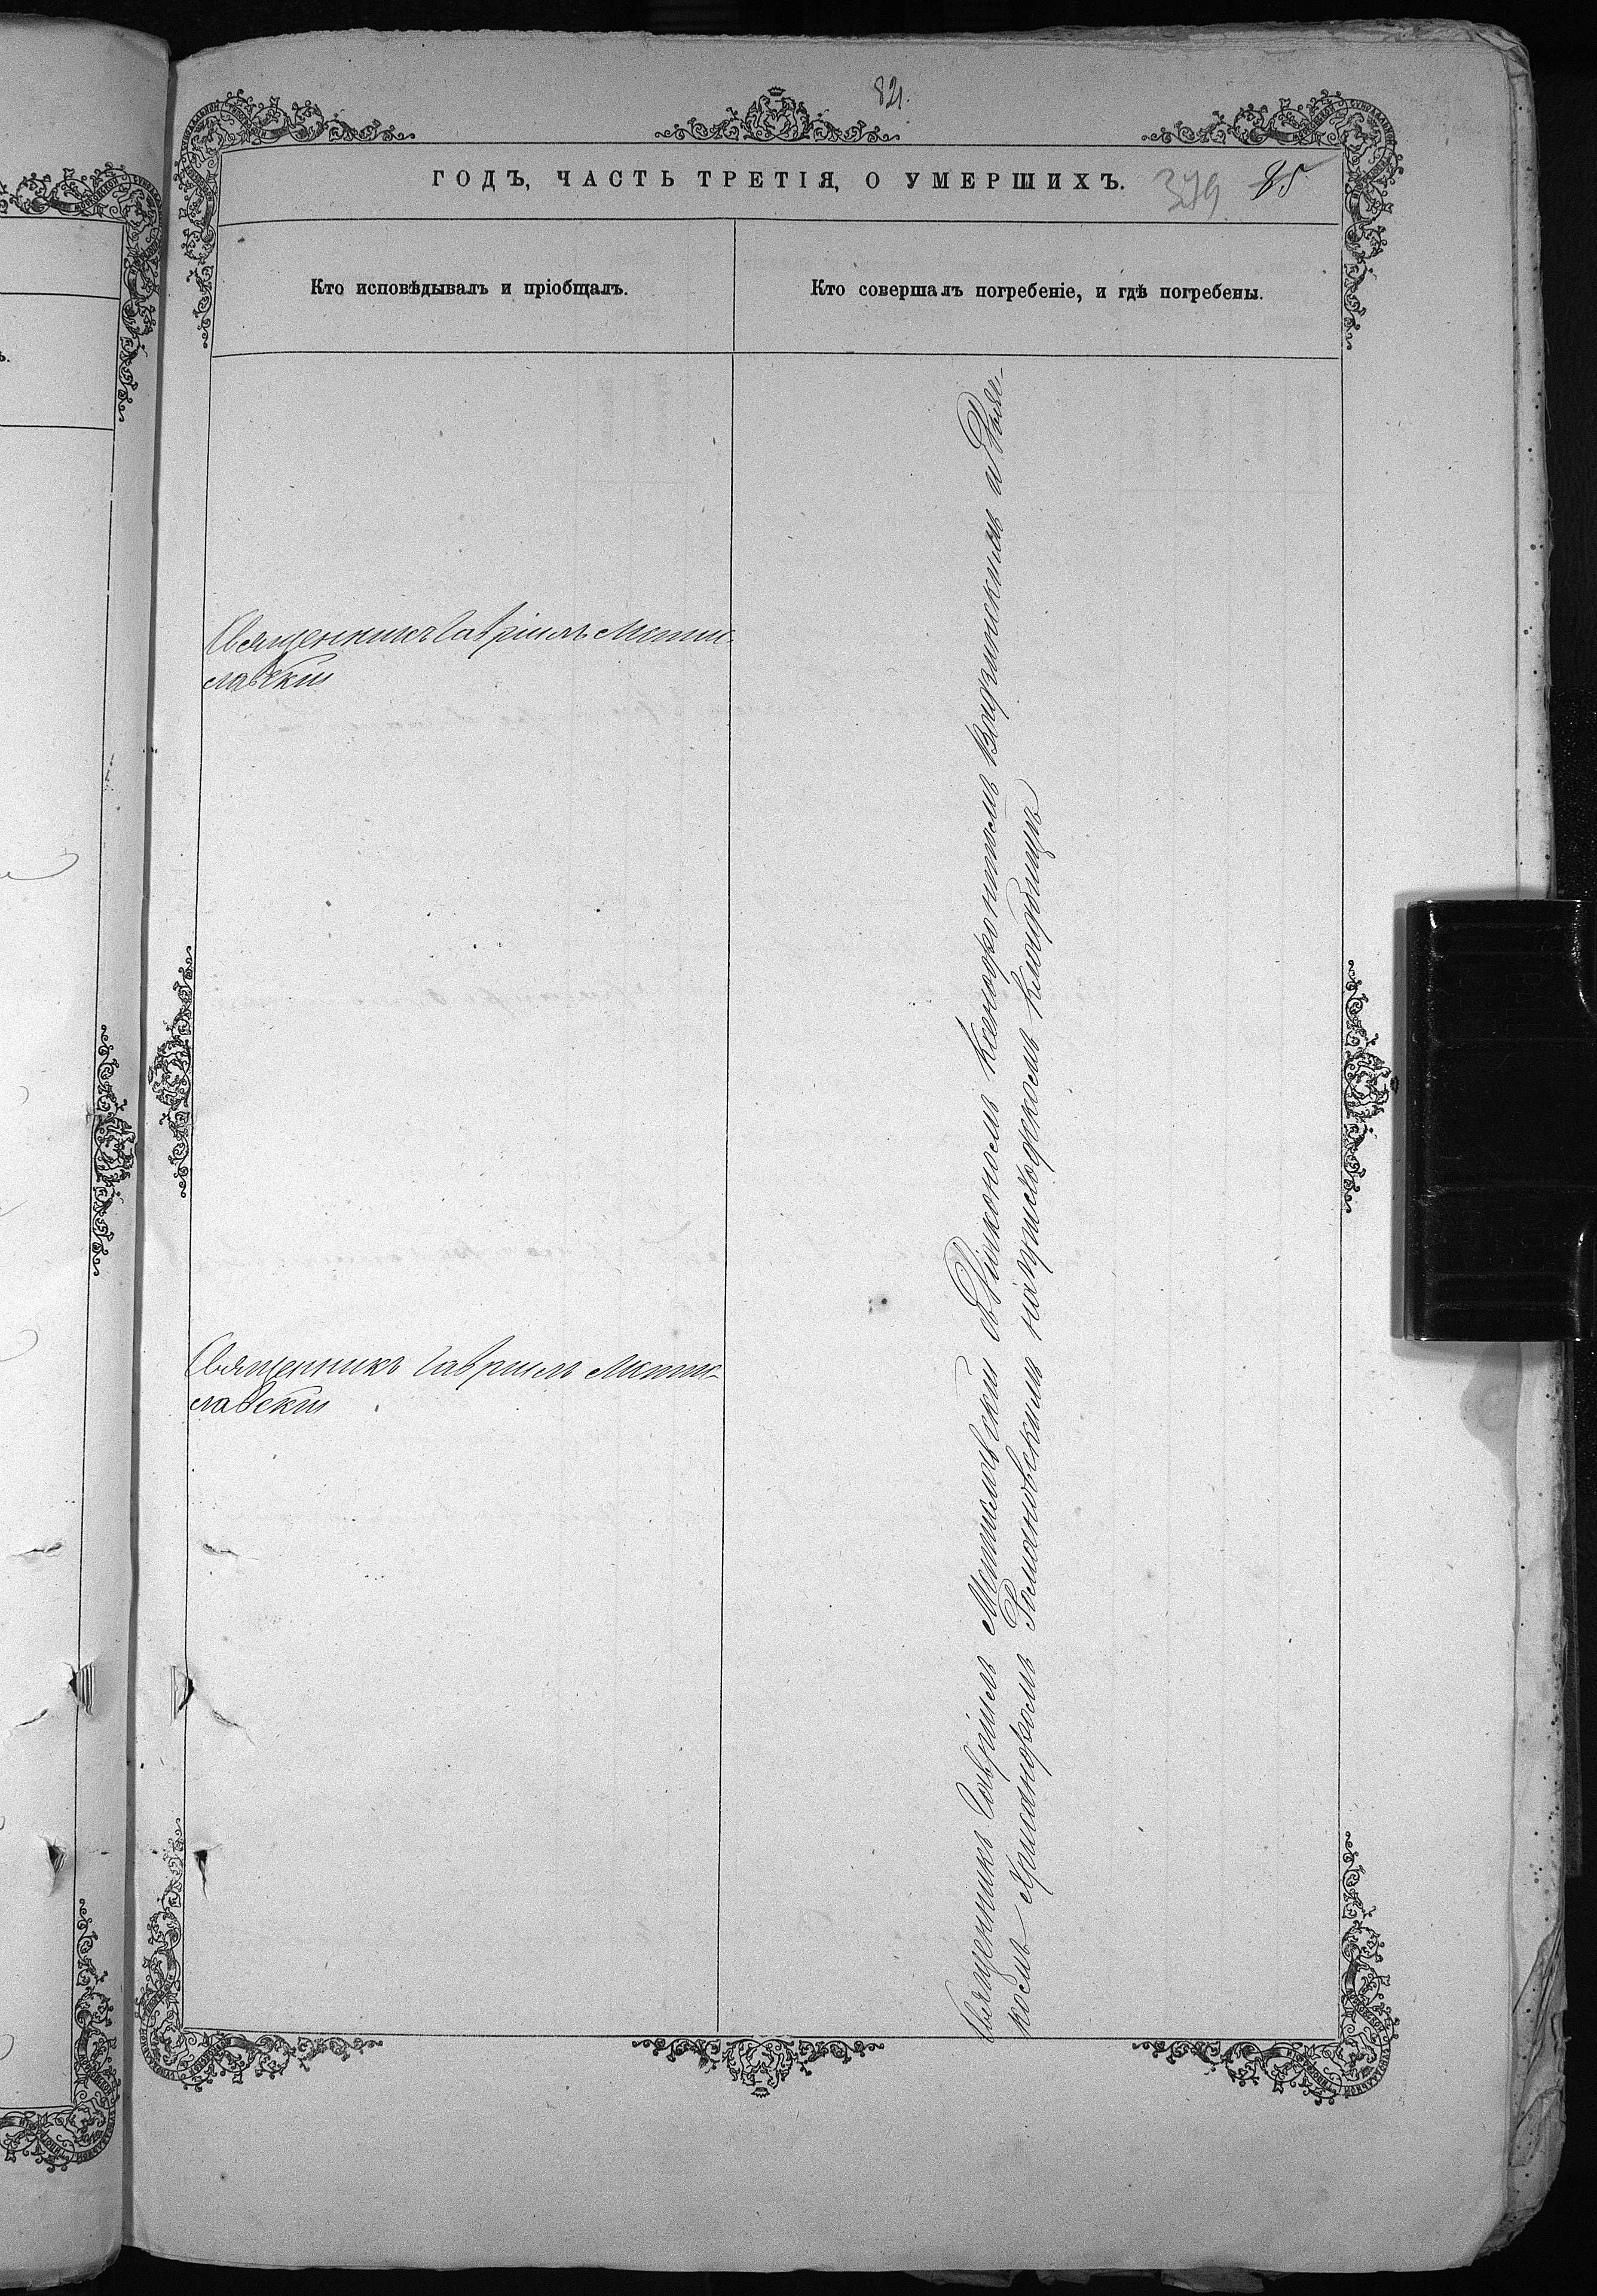 821.
ГОДЪ, ЧАСТЬ ТРЕТІЯ, О УМЕРШИХЪ.
379 85
Кто исповѣдывалъ и пріобщалъ.
Кто совершалъ погребеніе, и гдѣ погребены.
Священникъ Гавріилъ Мсти-
славскій
Священникъ Гавріилъ Мсти-
славскій
Священникъ Гавріилъ Мстиславскій съ Діакономъ Ксенофонтомъ и Дьяч-
комъ Хрисанфомъ Романовскимъ на приходскомъ кладбищѣ